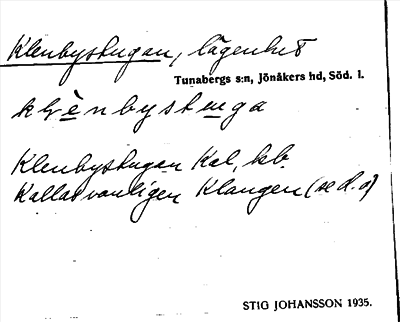 Klenbystugan, lägenhet
Tunabergs s:n, Jönåkers hd, Söd. l.
Klenbystugan Kal, kb.
Kallas vanligen Klangen (se d. o)
STIG JOHANSSON 1935.